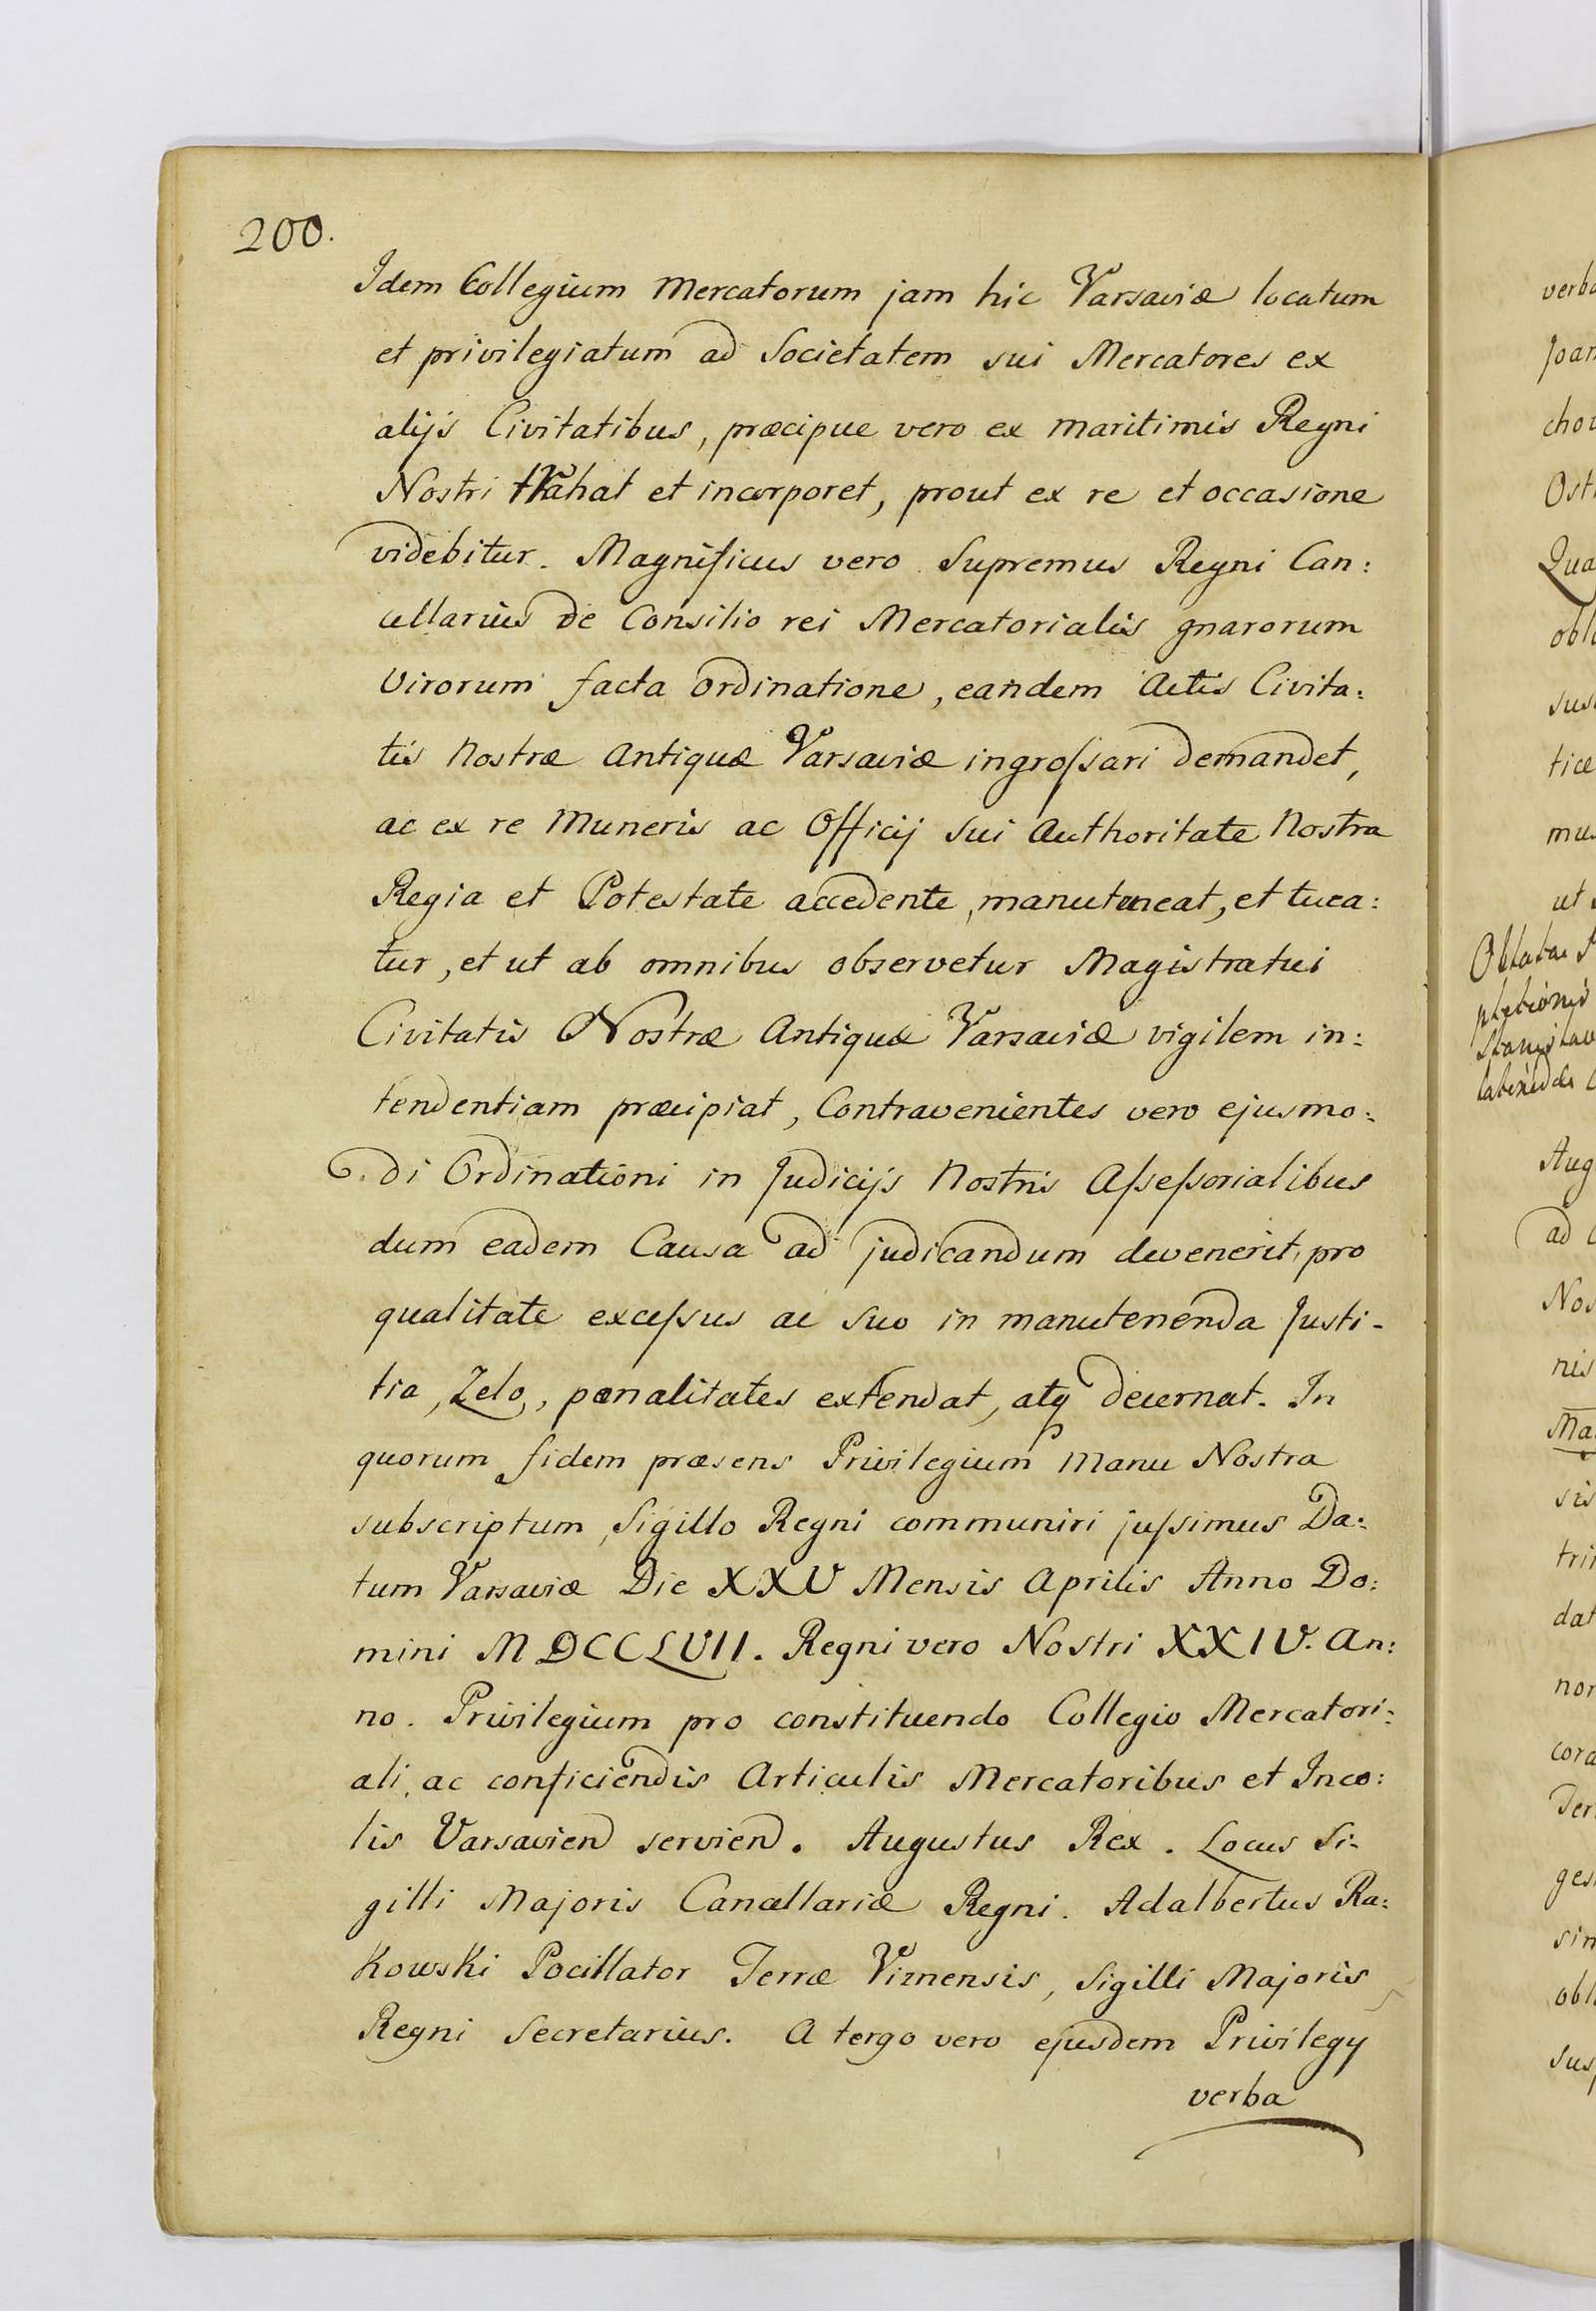 200.
Idem Collegium Mercatorum jam hic Varsaviæ locatum
et privilegiatum ad Societatem sui Mercatores ex
alijs Civitatibus, præcipue vero ex maritimis Regni
Nostri trahat et incorporet, prout ex re et occasione
videbitur. Magnificus vero Supremus Regni Can:
cellarius de Consilio rei Mercatorialis gnarorum
Virorum facta ordinatione, eandem Actis Civita:
tis Nostræ Antiquæ Varsaviæ ingroſsari demandet,
ac ex re Muneris ac Officij sui Authoritate Nostra
Regia et Potestate accedente, manuteneat, et tuea:
tur, et ut ab omnibus observetur Magistratui
Civitatis Nostræ Antiquæ Varsaviæ vigilem in:
tendentiam præcipiat, Contravenientes vero ejusmo:
di Ordinationi in Judicijs Nostris Aſseſsorialibus
dum eadem Causa ad judicandum devenerit, pro
qualitate exceſsus ac suo in manutenenda Justi-
tia, Zelo, pœnalitates extendat, atq decernat. In
quorum fidem præsens Privilegium Manu Nostra
subscriptum, Sigillo Regni communiri juſsimus Da:
tum Varsaviæ Die XXV Mensis Aprilis Anno Do:
mini MDCCLVII. Regni vero Nostri XXIV. An:
no. Privilegium pro constituendo Collegio Mercatori:
ali, ac conficiendis Articulis Mercatoribus et Inco:
lis Varsavien servien. Augustus Rex. Locus Si-
gilli Majoris Cancellariæ Regni. Adalbertus Ra:
kowski Pocillator Terræ Viznensis, Sigilli Majoris
Regni Secretarius. A tergo vero ejusdem Privilegy
verba